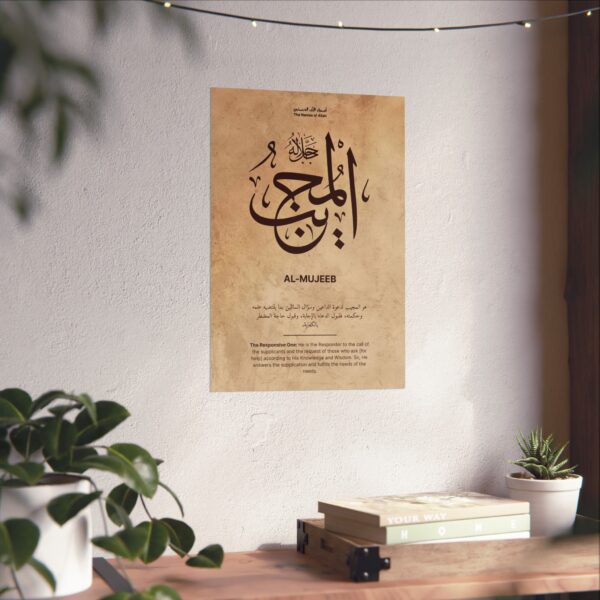 أسماء الله الحسنى
The Names of Allah
جل جلاله
المجيب
AL-MUJEEB
هو المجيب لدعوة الداعين وسؤال السائلين بما يقتضيه علمه
وحكمته، فقبول الدعاء بالإجابة، وقبول حاجة المضطر
بالكفاية.
The Responsive One: He is the Responder to the call of
the supplicants and the request of those who ask (for
help) according to His Knowledge and Wisdom. So, He
answers the supplication and fulfils the needs of the
needs.
YOUR WAY
HOME